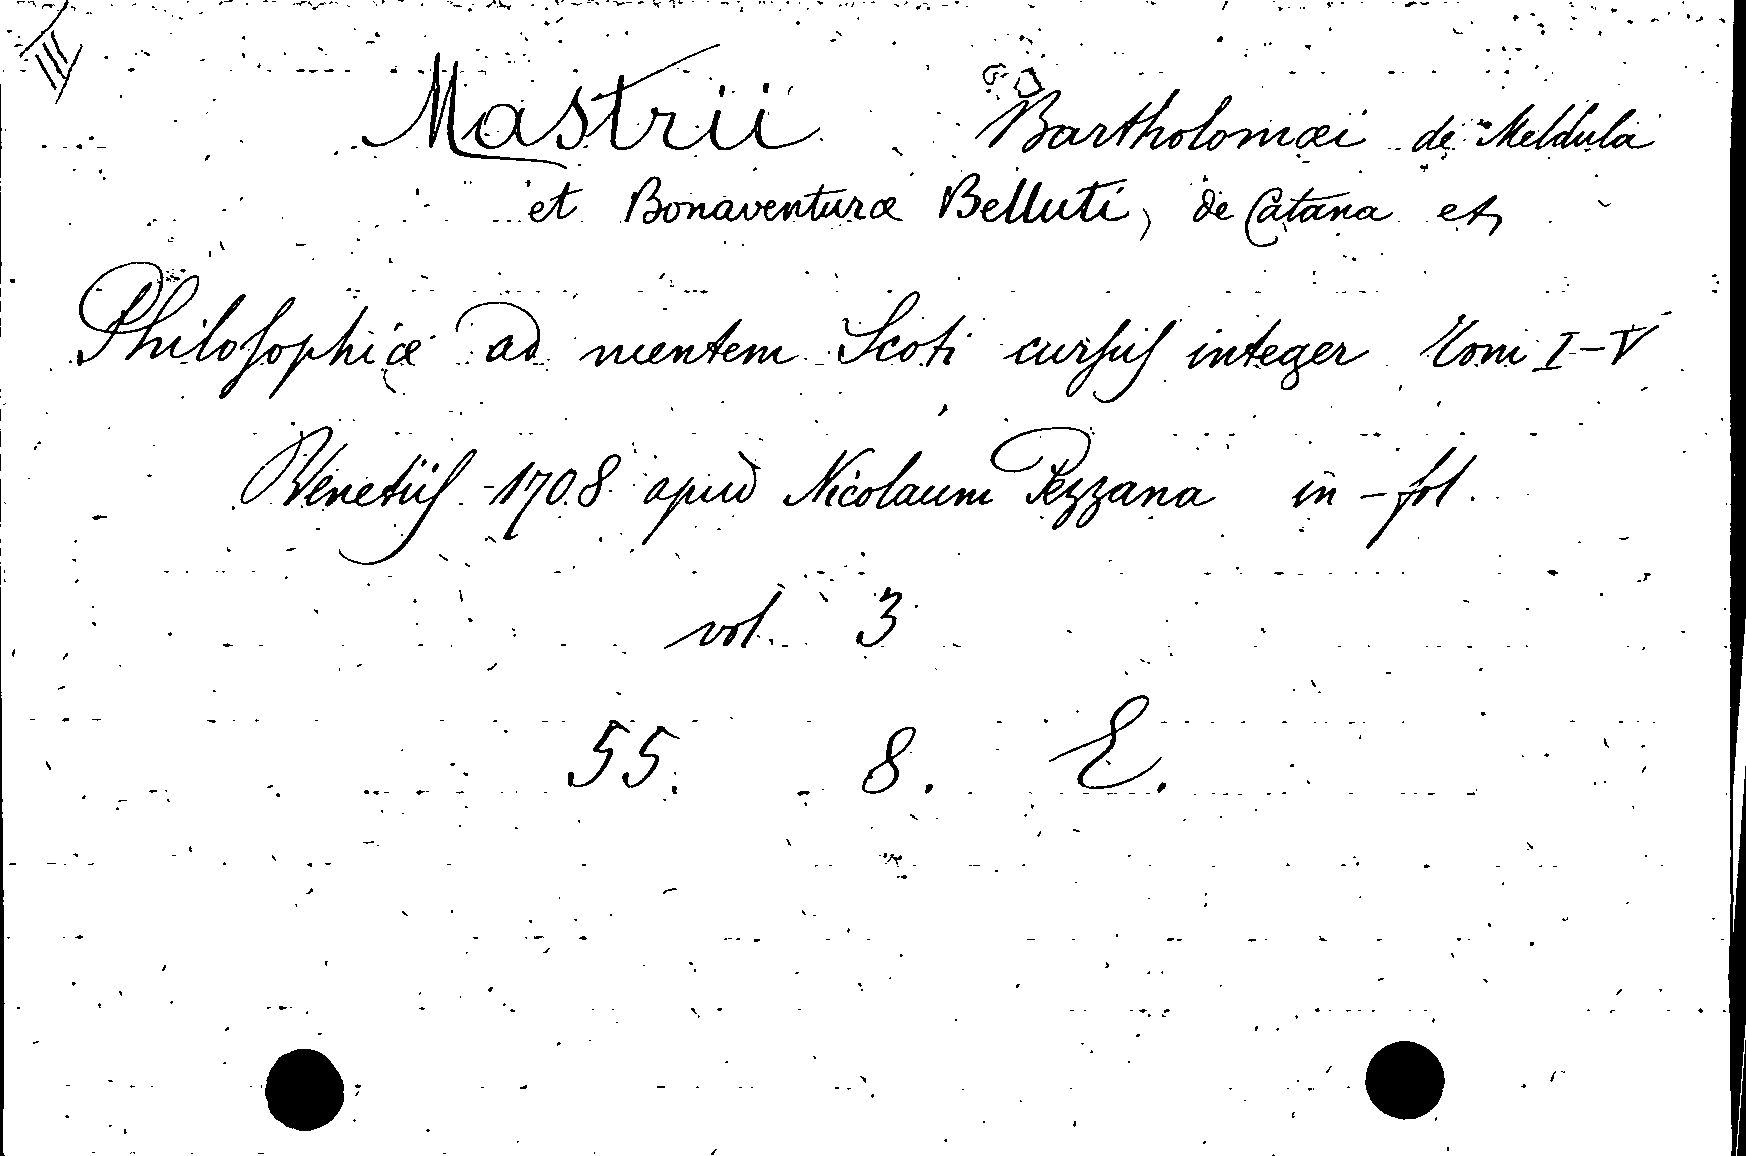 III
Mastrii Bartholomæi de Meldula
et Bonaventuræ Belluti, de Catana et
Philosophiæ ad mentem Scoti cursus integer Tomi I-V
Venetiis 1708 apud Nicolaum Pezzana in-fol.
vol. 3
55. 8. E.